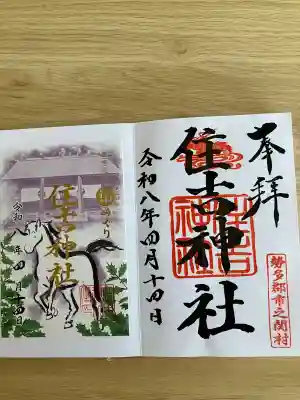 奉拝
住吉神社
令和八年四月十四日
勢多郡市之関村
住吉神社
令和八年四月十四日